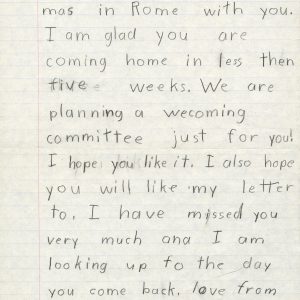 mas in Rome with you.
I am glad you are
coming home in less then
five weeks. We are
planning a wecoming
committee just for you!
I hope you like it. I also hope
you will like my letter
to. I have missed you
very much and I am
looking up to the day
you come back. love from